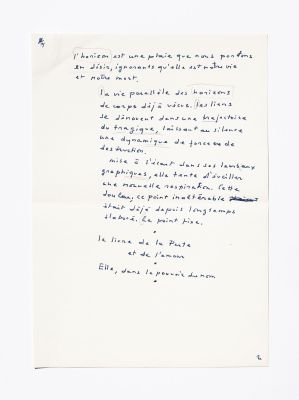 l'horizon est une plaie que nous portons
en désir, ignorants qu'elle est notre vie
et notre mort.
la vie parallèle des horizons
de corps déjà vécus. les liens
se dénouent dans une trajectoire
du tragique, laissant au silence
une dynamique de forces ou de
destruction.
mise à l'écart dans ses lambeaux
graphiques, elle tente d'éveiller
une nouvelle respiration. Cette
douleur, ce point inaltérable
était déjà depuis longtemps
élaboré. Le point fixe.
*
le livre de la Perte
et de l'amour
*
Elle, dans le pouvoir du nom
*